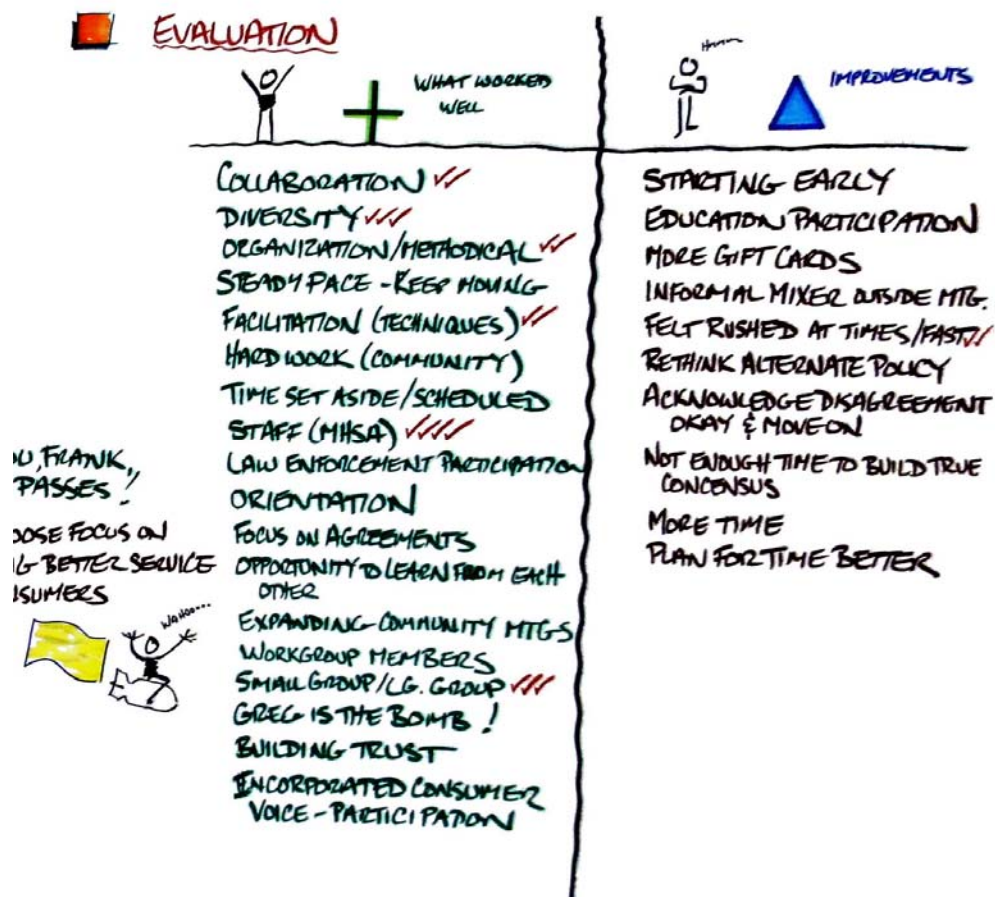 EVALUATION
WHAT WORKED
WELL
COLLABORATION ✓✓
DIVERSITY ✓✓✓
ORGANIZATION/METHODICAL ✓✓
STEADY PACE - KEEP MOVING
FACILITATION (TECHNIQUES) ✓✓
HARD WORK (COMMUNITY)
TIME SET ASIDE/SCHEDULED
STAFF (MHSA) ✓✓✓✓
LAW ENFORCEMENT PARTICIPATION
ORIENTATION
FOCUS ON AGREEMENTS
OPPORTUNITY TO LEARN FROM EACH
OTHER
EXPANDING COMMUNITY MTGS
WORKGROUP MEMBERS
SMALL GROUP/LG. GROUP ✓✓✓
GREG IS THE BOMB!
BUILDING TRUST
INCORPORATED CONSUMER
VOICE - PARTICIPATION
FRANK,
PASSES!
FOCUS ON
BETTER SERVICE
WAHOO...
IMPROVEMENTS
STARTING EARLY
EDUCATION PARTICIPATION
MORE GIFT CARDS
INFORMAL MIXER OUTSIDE MTG.
FELT RUSHED AT TIMES/FAST ✓✓
RETHINK ALTERNATE POLICY
ACKNOWLEDGE DISAGREEMENT
OKAY & MOVE ON
NOT ENOUGH TIME TO BUILD TRUE
CONCENSUS
MORE TIME
PLAN FOR TIME BETTER